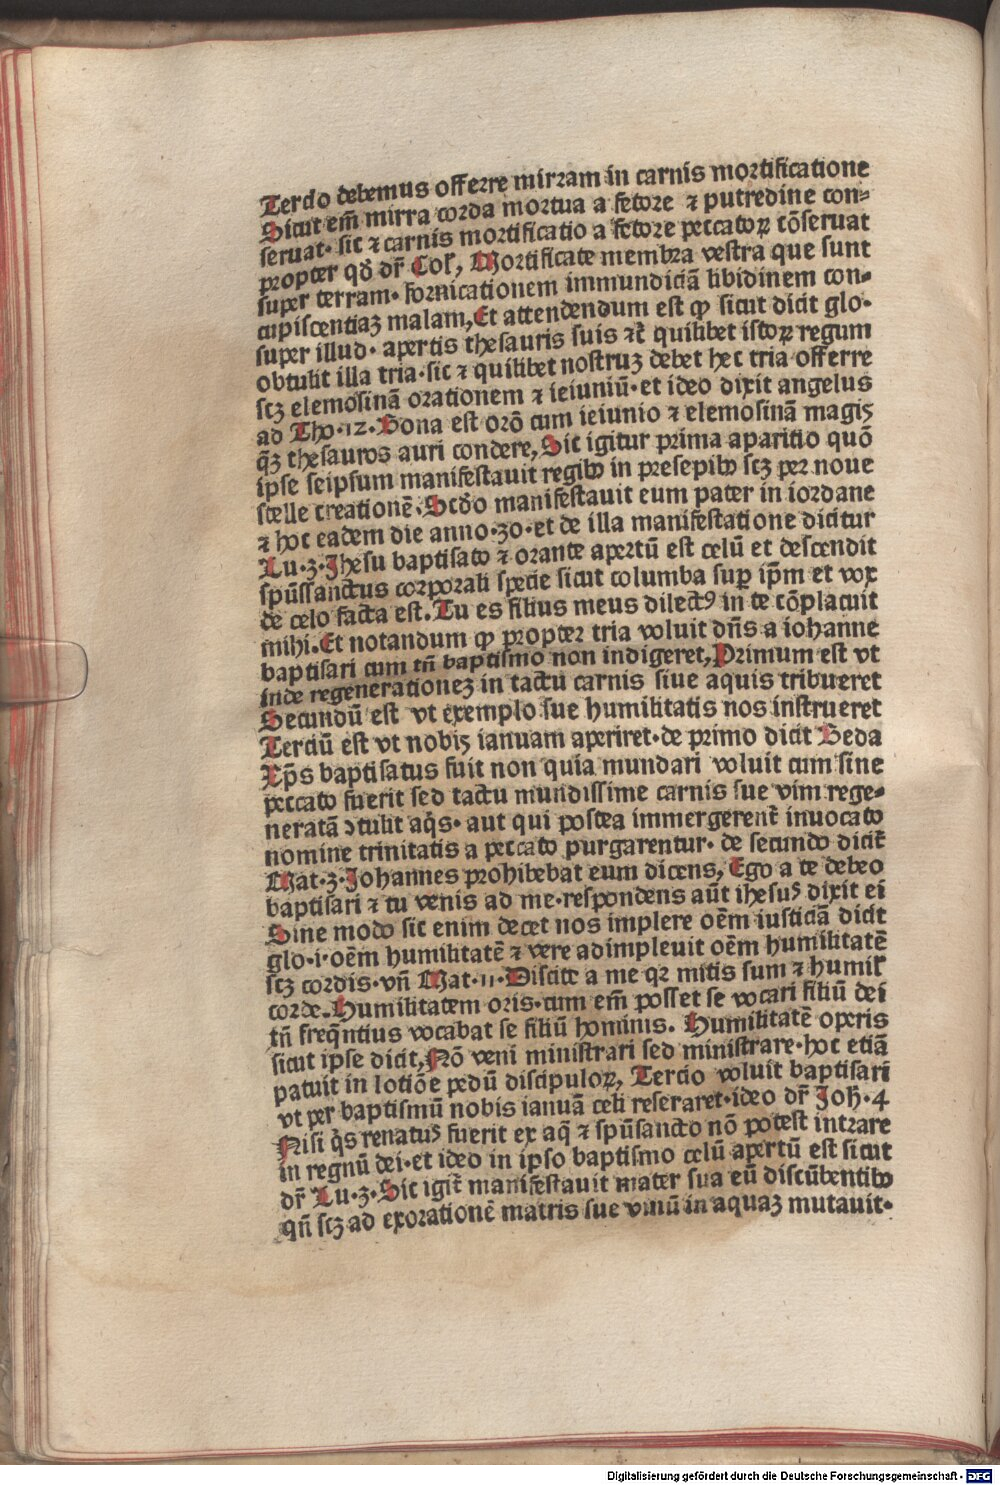 Tercio debemus offerre mirram in carnis mortificatione
Sicut em̄ mirra corda mortua a fetore ⁊ putredine con⸗
seruat· sic ⁊ carnis mortificatio a fetore peccatoꝝ cōseruat
propter qď dr̄ Col̛, Mortificate membra vestra que sunt
super terram· fornicationem immundiciā libidinem con⸗
cupiscentiaꝫ malam, Et attendendum est ꝙ sicut dicit glo·
super illud· apertis thesauris suis ⁊c̄ quilibet istoꝝ regum
obtulit illa tria· sic ⁊ quilibet nostruꝫ debet hec tria offerre
scꝫ elemosinā orationem ⁊ ieiuniū· et ideo dixit angelus
ad Tho·12· Bona est orō cum ieiunio ⁊ elemosinā magis
q̄ꝫ thesauros auri condere, Sic igitur prima aparitio quō
ipse seipsum manifestauit regibꝰ in presepibꝰ scꝫ per noue
stelle creationē· Scďo manifestauit eum pater in iordane
⁊ hoc eadem die anno·30· et de illa manifestatione dicitur
Lu·3· Jhesu baptisato ⁊ orante apertū est celū et descendit
spūssanctus corporali specie sicut columba sup̄ ip̄m et vox
de celo facta est. Tu es filius meus dilectꝰ in te cōplacuit
mihi. Et notandum ꝙ propter tria voluit dn̄s a iohanne
baptisari cum tn̄ baptismo non indigeret, Primum est vt
inde regenerationeꝫ in tactu carnis siue aquis tribueret
Secundū est vt exemplo sue humilitatis nos instrueret
Terciū est vt nobis ianuam aperiret· de primo dicit Beda
Xp̄s baptisatus fuit non quia mundari voluit cum sine
peccato fuerit sed tactu mundissime carnis sue vim rege⸗
neratā ꝯtulit aq̄s· aut qui postea immergerent̄ inuocato
nomine trinitatis a peccato purgarentur· de secundo dicit̄
Mat·3· Johannes prohibebat eum dicens, Ego a te debeo
baptisari ⁊ tu venis ad me· respondens aūt ihesuꝰ dixit ei
Sine modo sic enim decet nos implere oēm iusticiā dicit
glo·i·oēm humilitatē ⁊ vere adimpleuit oēm humilitatē
scꝫ cordis· vn̄ Mat·11· Discite a me qꝛ mitis sum ⁊ humil̛
corde. Humilitatem oris· cum em̄ posset se vocari filiū dei
tn̄ freq̄ntius vocabat se filiū hominis. Humilitatē operis
sicut ipse dicit, Nō veni ministrari sed ministrare· hoc etiā
patuit in lotiōe pedū discipuloꝝ, Tercio voluit baptisari
vt per baptismū nobis ianuā celi reseraret· ideo dr̄ Joh̄·4
Nisi q̄s renatuꝰ fuerit ex aq̄ ⁊ spūsancto nō potest intrare
in regnū dei· et ideo in ipso baptismo celū apertū est sicut
dr̄ Lu·3· Sic igit̄ manifestauit mater sua eū discūbentibꝰ
qn̄ scꝫ ad exorationē matris sue vinū in aquaꝫ mutauit·
Digitalisierung gefördert durch die Deutsche Forschungsgemeinschaft - DFG